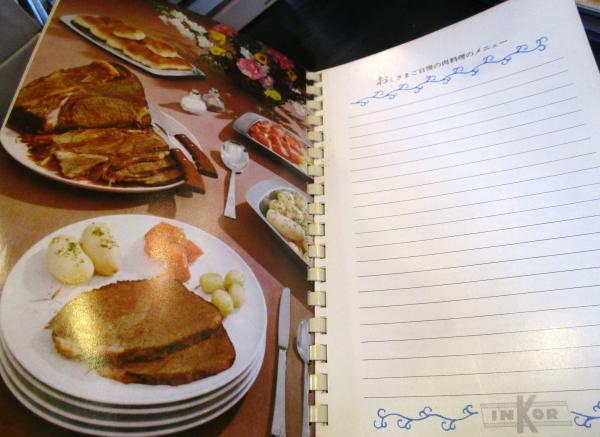 おくさまご自慢の肉料理のメニュー
INKOR